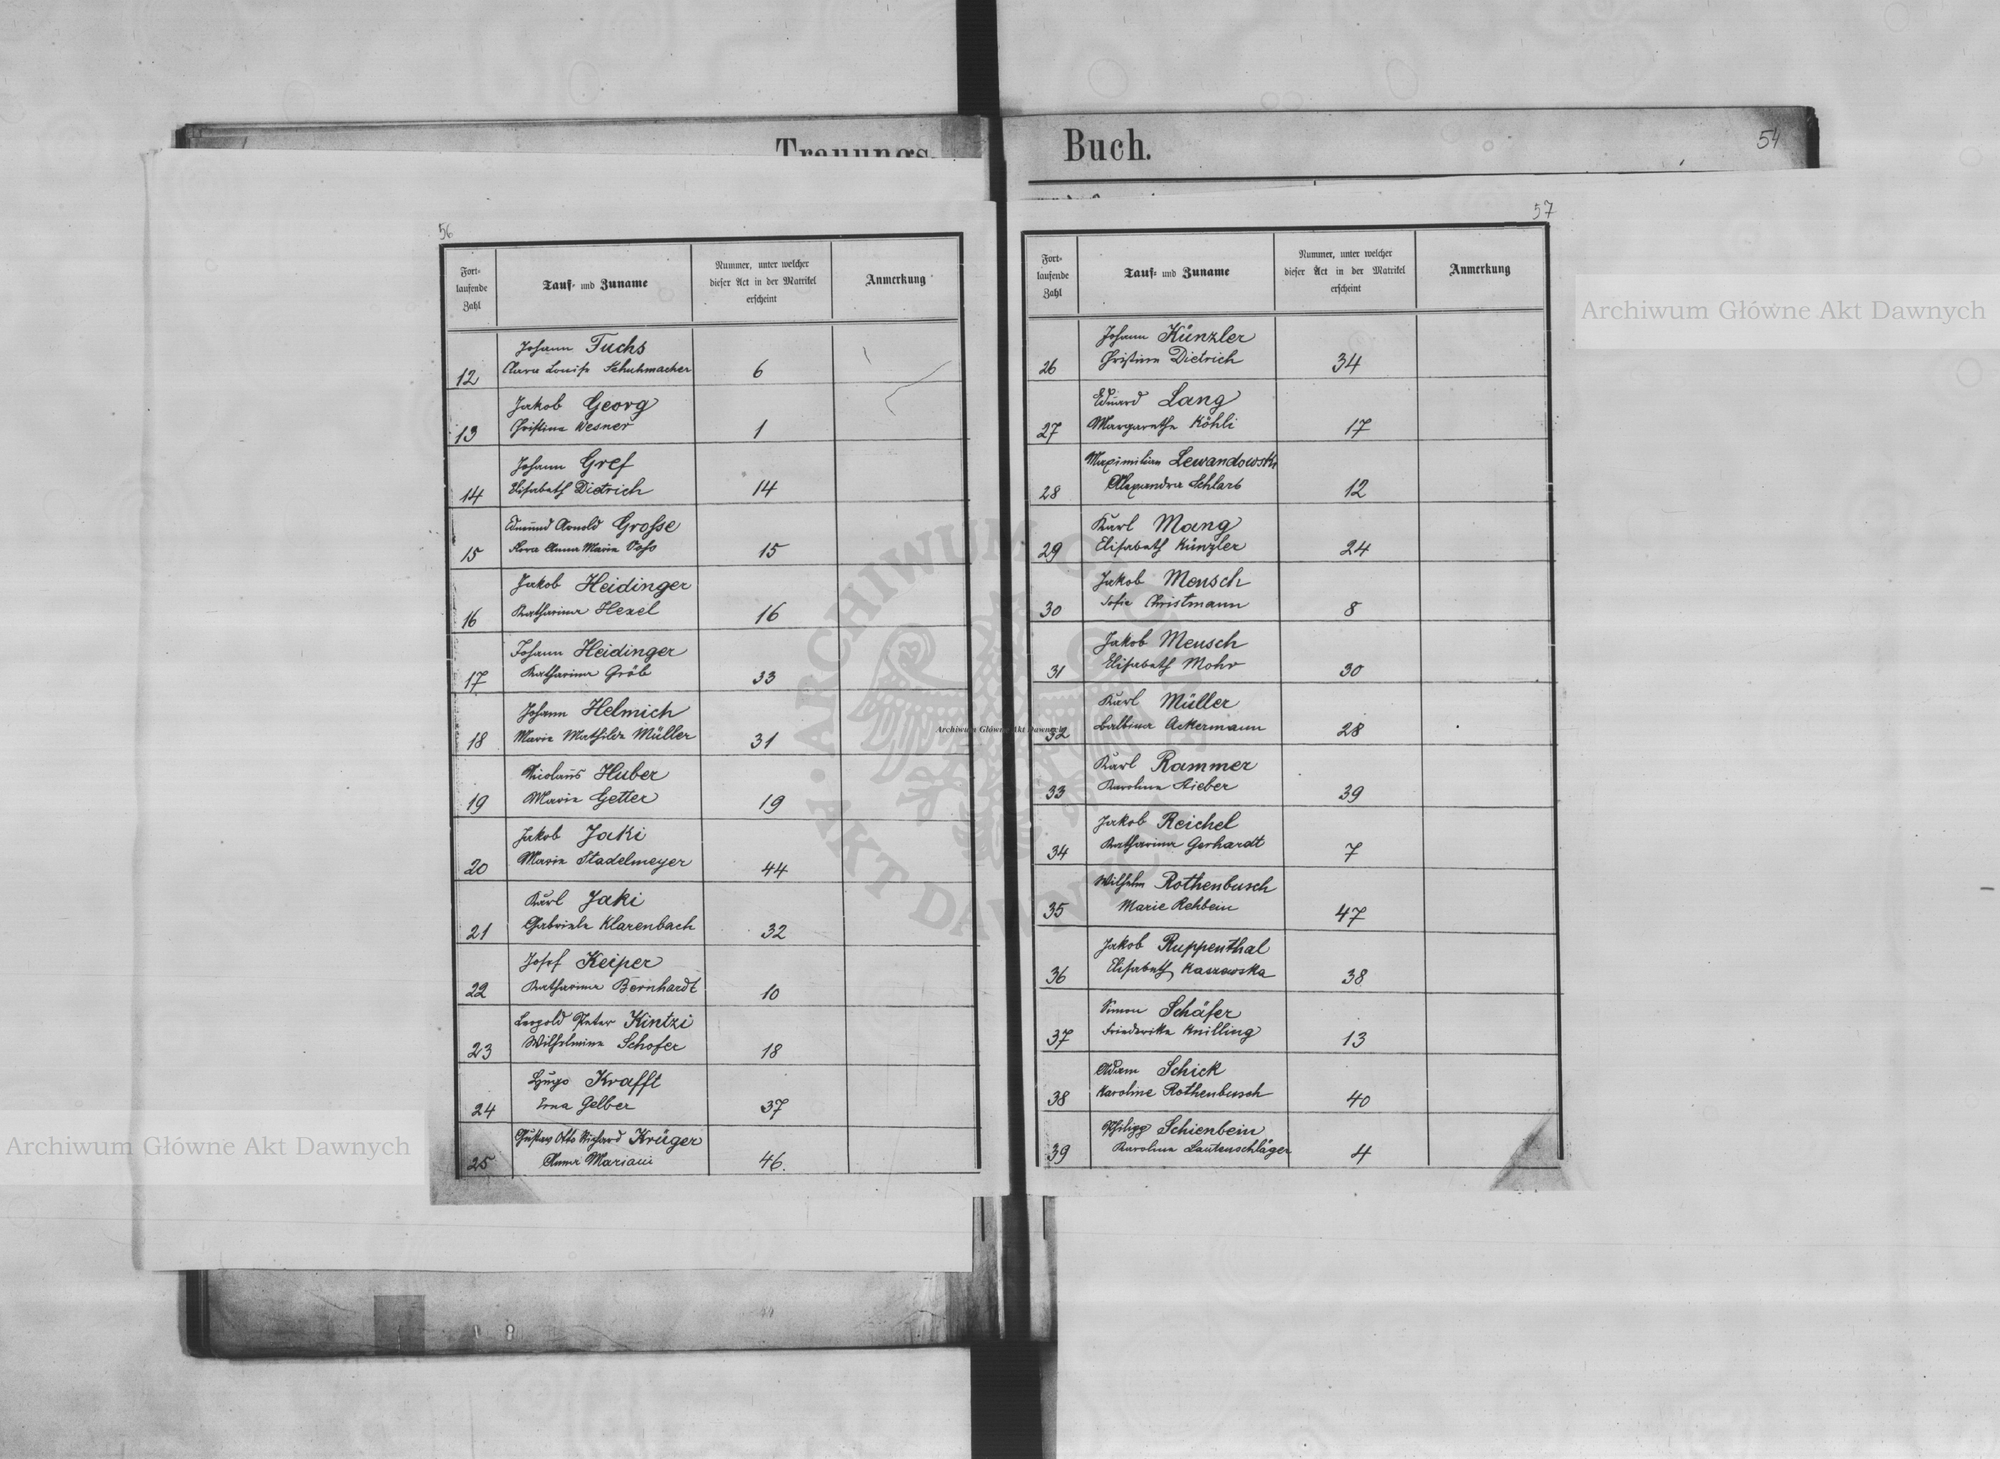 Trauungs-
Buch.
54
56
Fort-
laufende
Zahl
Tauf- und Zuname
Nummer, unter welcher
dieser Act in der Matrikel
erscheint
Anmerkung
Johann Fuchs
12 Clara Louise Schuhmacher 6
Jakob Georg
13 Christina Wesner 1
Johann Gref
14 Elisabeth Dietrich 14
Edmund Arnold Grosse
15 Anna Maria 15
Jakob Heidinger
16 Katharina Hexel 16
Johann Heidinger
17 Katharina Gröb 33
Johann Helmich
18 Maria Mathilda Müller 31
Nicolaus Huber
19 Maria Getter 19
Jakob Jaki
20 Maria Stadelmeyer 44
Karl Jaki
21 Gabriele Klarenbach 32
Josef Keiper
22 Katharina Bernhardt 10
Leopold Peter Kintzi
23 Wilhelmine Schofer 18
Hugo Krafft
24 Erna Gelber 37
Gustav Otto Richard Krüger
25 Anna Mariani 46.
57
Fort-
laufende
Zahl
Tauf- und Zuname
Nummer, unter welcher
dieser Act in der Matrikel
erscheint
Anmerkung
Johann Künzler
26 Christina Dietrich 34
Eduard Lang
27 Margarethe Köhli 17
Maximilian Lewandowski
28 Alexandra Schlarb 12
Karl Mang
29 Elisabeth Künzler 24
Jakob Mensch
30 Sofie Christmann 8
Jakob Mensch
31 Elisabeth Mohr 30
Karl Müller
32 Balbina Ackermann 28
Karl Rammer
33 Karolina 39
Jakob Reichel
34 Katharina Gerhardt 7
Wilhelm Rothenbusch
35 Marie Rehbein 47
Jakob Ruppenthal
36 Elisabeth Kaszewska 38
Simon Schäfer
37 Friederike Knilling 13
Adam Schick
38 Karoline Rothenbusch 40
Philipp Schienbein
39 Karolina Lautenschläger 4
Archiwum Główne Akt Dawnych
Archiwum Główne Akt Dawnych
Archiwum Główne Akt Dawnych
ARCHIWUM GŁÓWNE
AKT DAWNYCH